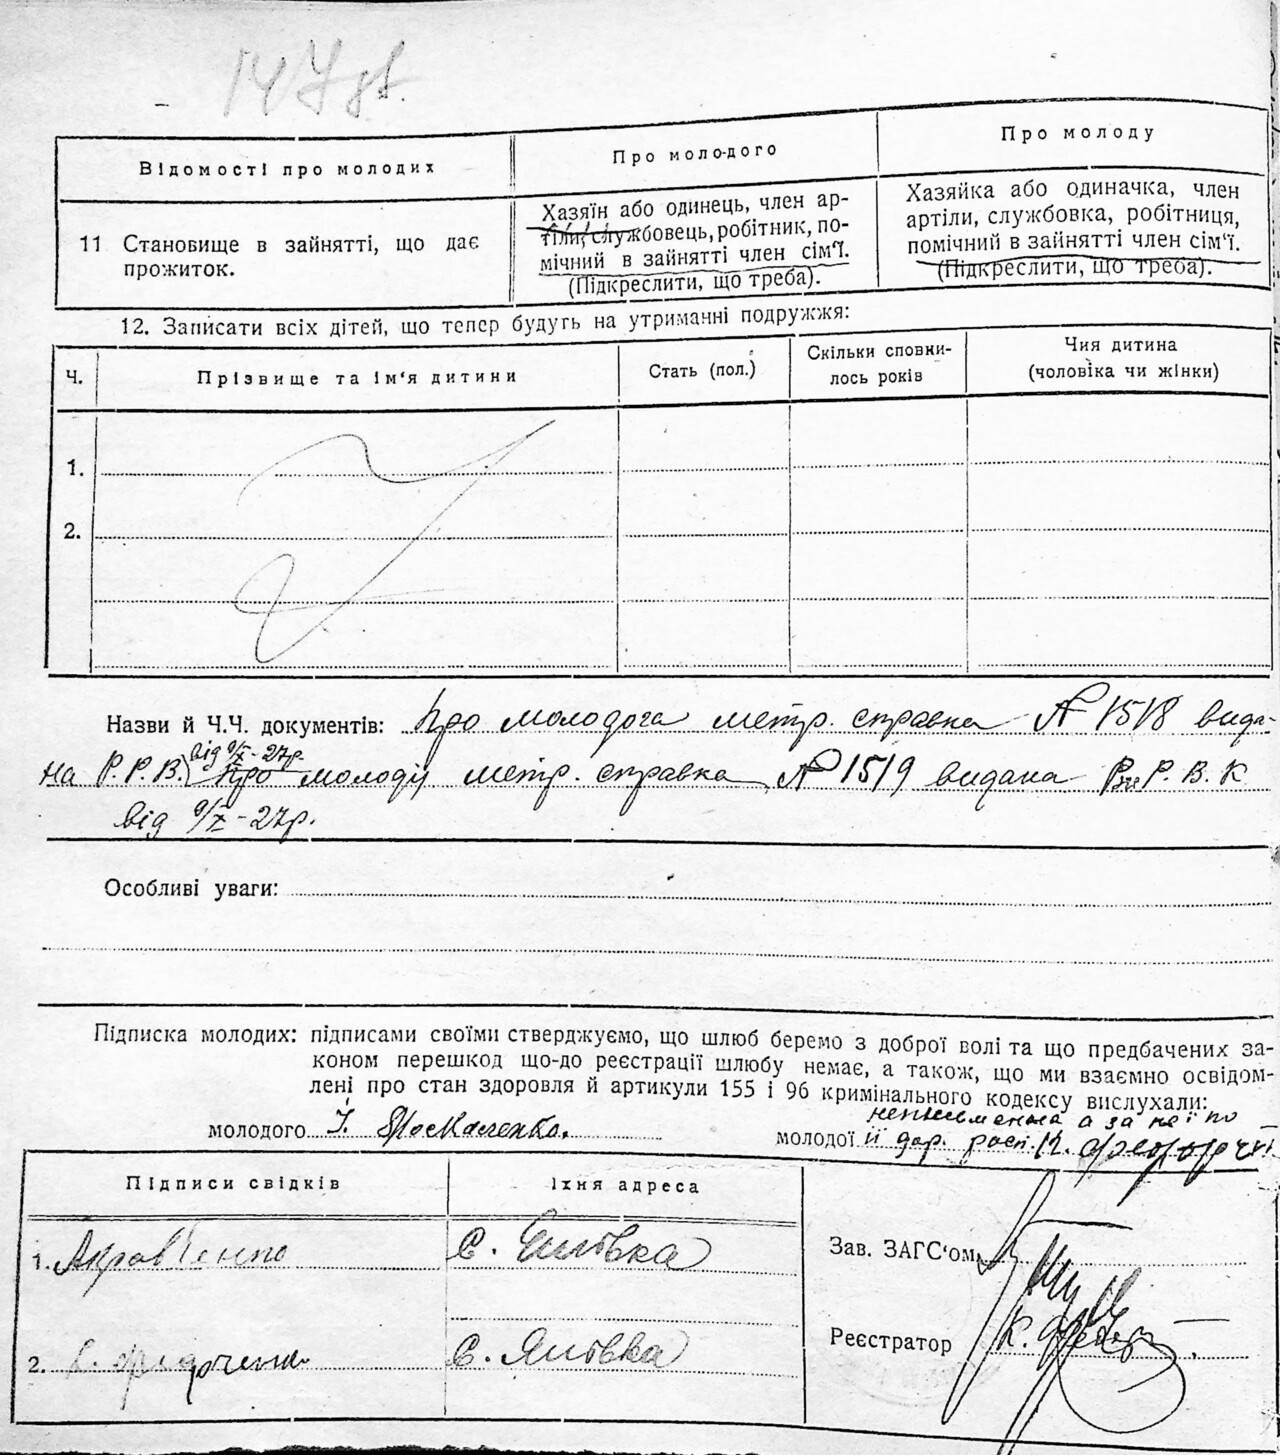 147 зв.
Відомості про молодих
Про молодого
Про молоду
11 Становище в зайнятті, що дає
прожиток.
Хазяїн або одинець, член ар-
тілі, службовець, робітник, по-
мічний в зайнятті член сім'ї.
(Підкреслити, що треба).
Хазяйка або одиначка, член
артіли, службовка, робітниця,
помічний в зайнятті член сім'ї.
(Підкреслити, що треба).
12. Записати всіх дітей, що тепер будуть на утриманні подружжя:
Ч.
Прізвище та ім'я дитини
Стать (пол.)
Скільки сповни-
лось років
Чия дитина
(чоловіка чи жінки)
1.
2.
Назви й Ч.Ч. документів: Про молодога метр. справка № 1518 вида-
від 9/X-27р.
на Р.Р.В. Про молоду метр. справка № 1519 видана Р.В.К
від 9/X-27р.
Особливі уваги:
Підписка молодих: підписами своїми стверджуємо, що шлюб беремо з доброї волі та що предбачених за-
коном перешкод що-до реєстрації шлюбу немає, а також, що ми взаємно освідом-
лені про стан здоровля й артикули 155 і 96 кримінального кодексу вислухали:
неписьменна а за неї по
молодого І. Москаленко.
молодої її дор. росп. К.
Підписи свідків
Їхня адреса
1.
с. Ялівка
Зав. ЗАГС'ом
Реєстратор К.
2.
с. Ялівка